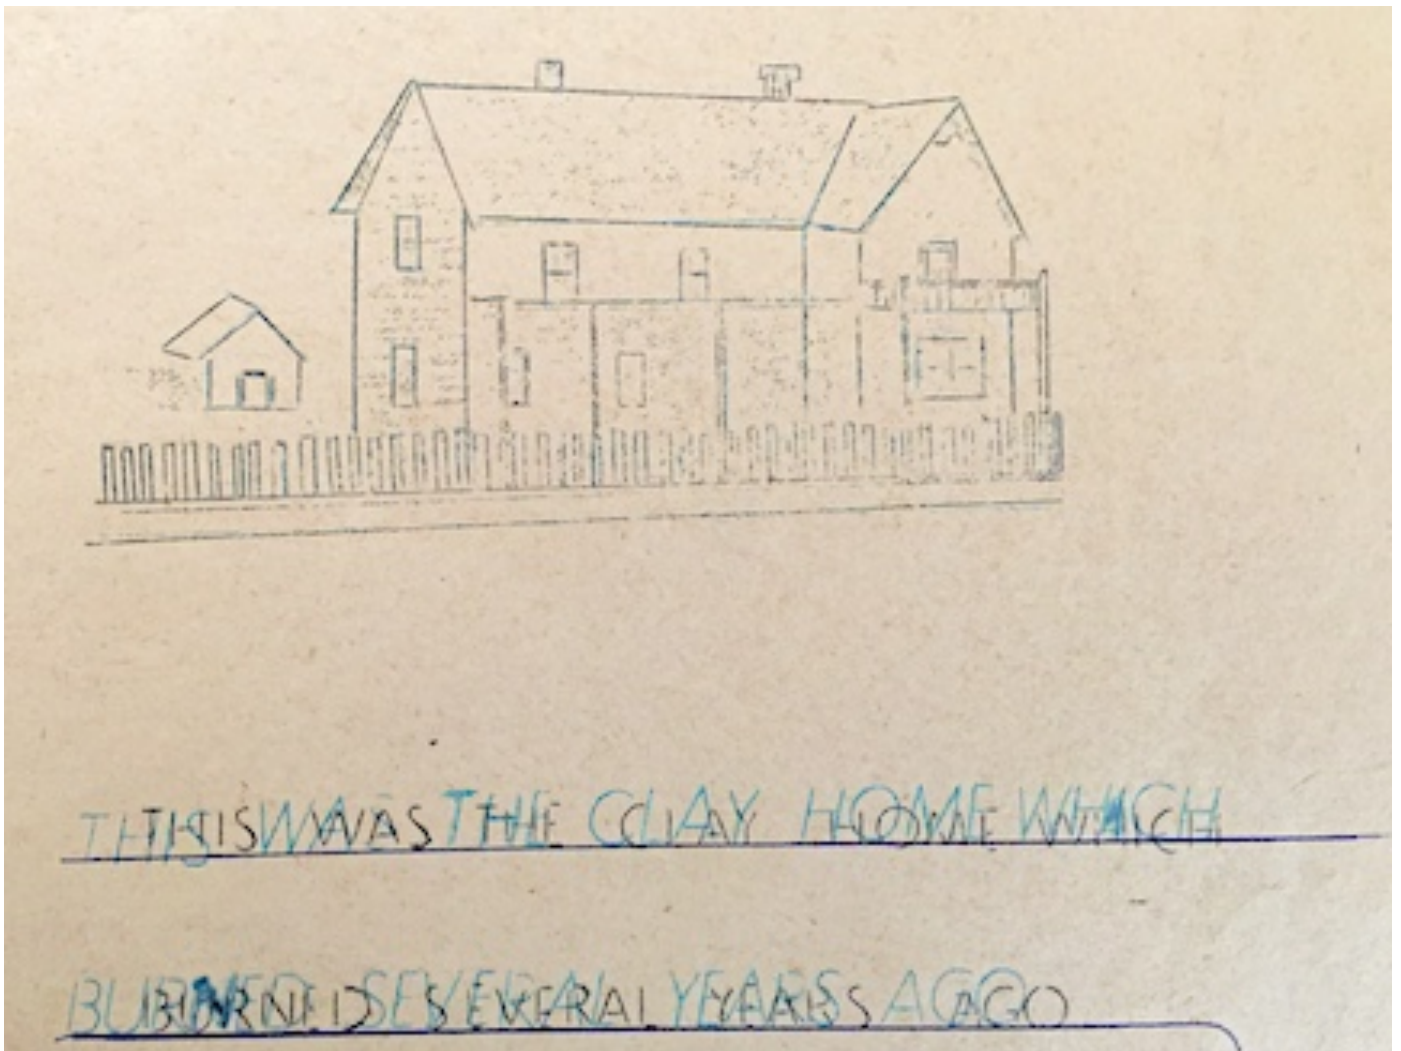 THIS WAS THE CLAY HOME WHICH
BURNED SEVERAL YEARS AGO